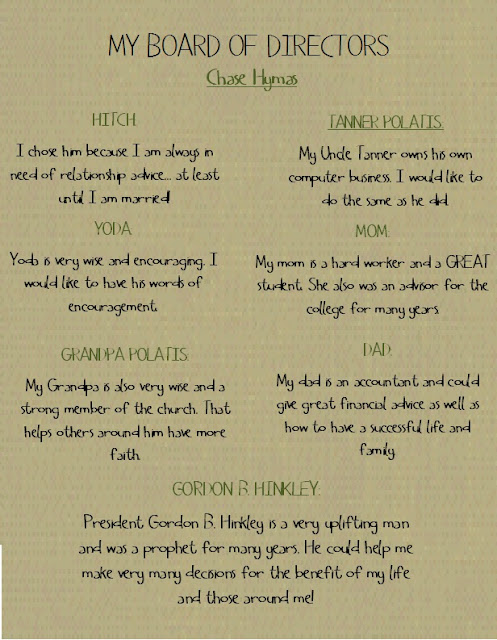 MY BOARD OF DIRECTORS
Chase Hymas
HITCH:
I chose him because I am always in
need of relationship advice... at least
until I am married!
TANNER POLATIS:
My Uncle Tanner owns his own
computer business. I would like to
do the same as he did.
YODA:
Yoda is very wise and encouraging. I
would like to have his words of
encouragement.
MOM:
My mom is a hard worker and a GREAT
student. She also was an advisor for the
college for many years.
GRANDPA POLATIS:
My Grandpa is also very wise and a
strong member of the church. That
helps others around him have more
faith.
DAD:
My dad is an accountant and could
give great financial advice as well as
how to have a successful life and
family.
GORDON B. HINKLEY:
President Gordon B. Hinkley is a very uplifting man
and was a prophet for many years. He could help me
make very many decisions for the benefit of my life
and those around me!